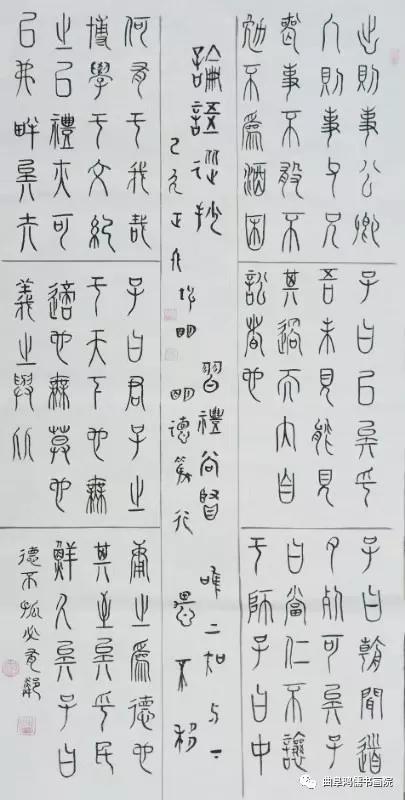 出則事公卿
入則事父兄
喪事不敢不
勉不為酒困
何有于我哉
博學于文約
之以禮亦可
以弗畔矣夫
子曰已矣乎
吾未見能見
其過而內自
訟者也
子曰君子之
于天下也無
適也無莫也
義之與比
子曰朝聞道
夕死可矣子
曰當仁不讓
于師子曰中
庸之為德也
其至矣乎民
鮮久矣子曰
德不孤必有鄰
論語選抄
習禮
明德篤行
唯上知与下
愚不移
己亥正月
曲阜鸿儒书画院